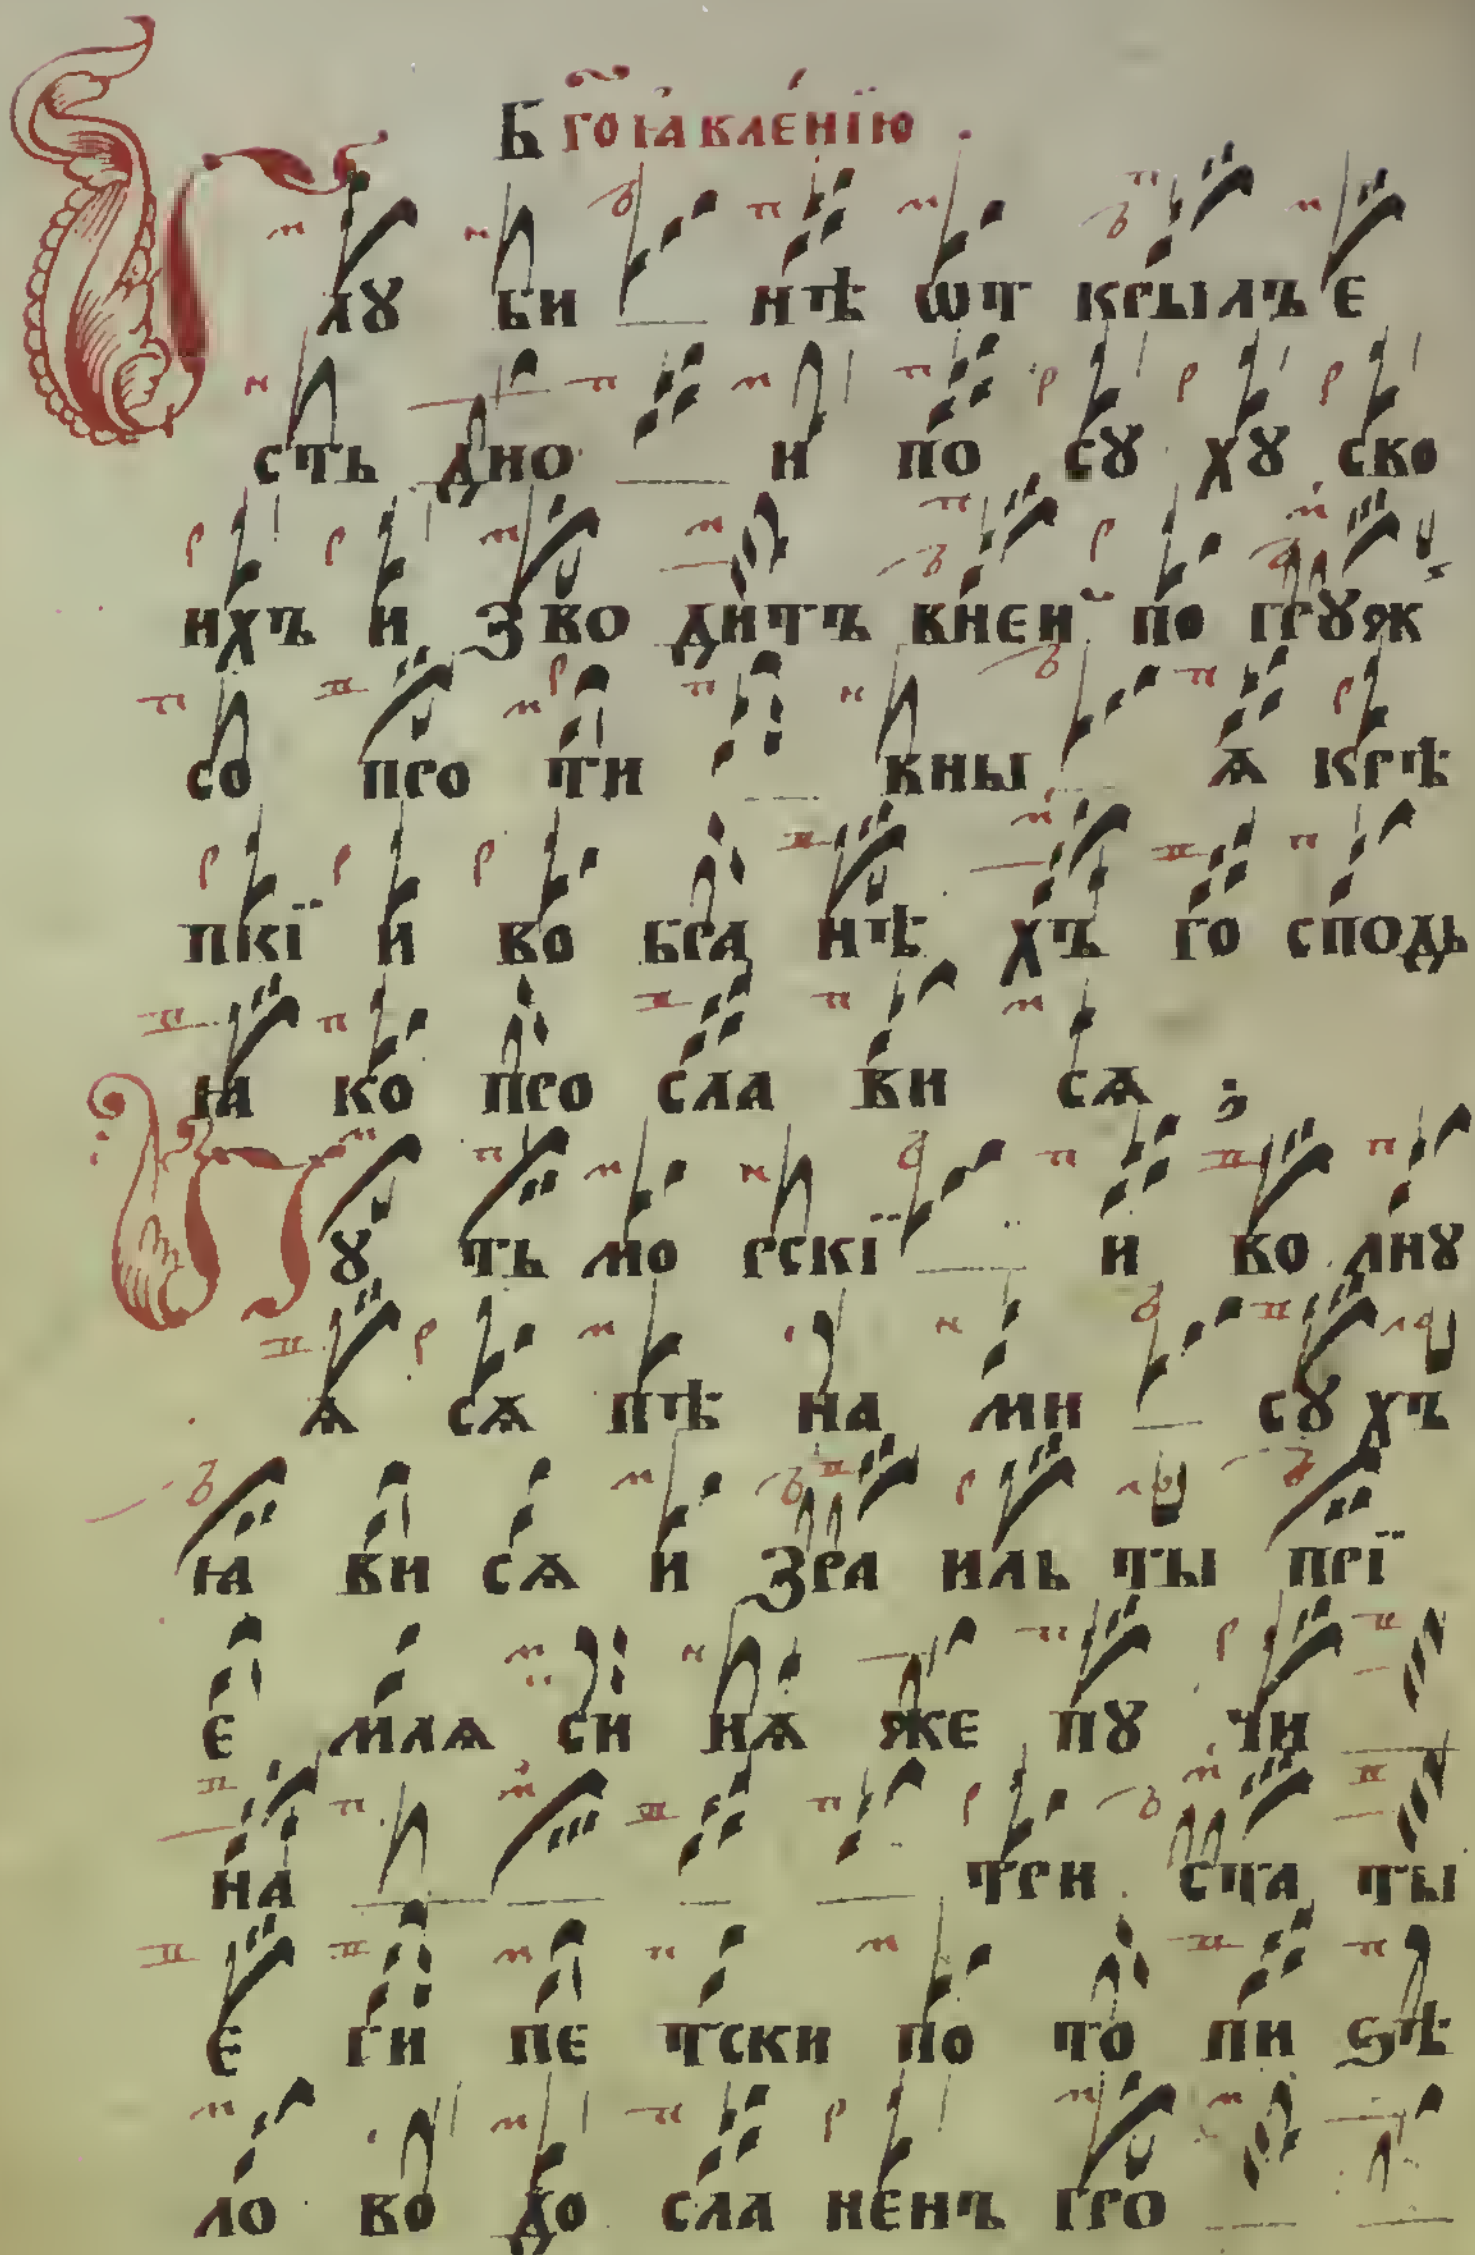 Бг҃оꙗвле́нїю
Глꙋ би нѣ ѿт крылъ е
сть дно и по сꙋ хꙋ ско
ихъ и зво дитъ вней по грꙋж
со про ти вны ѧ крѣ
пкї и во бра нѣ хъ го сподь
ꙗ ко про сла ви сѧ
Пꙋ ть мо рскї и во лнꙋ
ѧ сѧ пѣ на ми сꙋ хъ
ꙗ ви сѧ и зра иль ты прї
е млѧ си нѧ же пꙋ чи
на три ста ты
е ги пе тски по то пи ѕѣ
ло во до сла ненъ гро